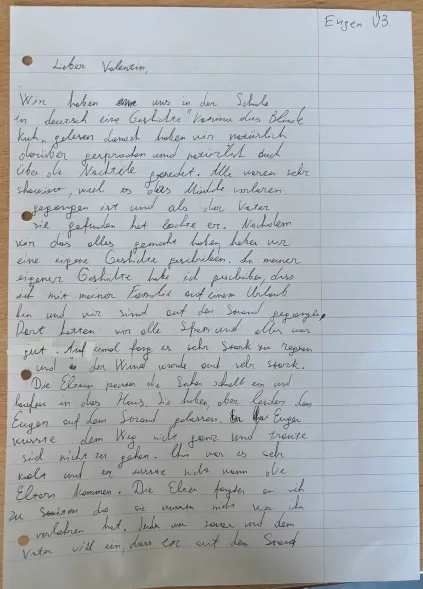 Eugen Ü3
Lieber Valentin,
Wir haben uns in der Schule
in deutsch eine Geshichte "Karima das Blinde
Kuh" gelesen danach haben wir natürlich
darüber gesprochen und natürlich auch
über die Nachteile geredet. Alle waren sehr
weil es das Mädche verloren
gegangen ist und als der Vater
sie gefunden hat lachte er. Nachdem
wir das alles gemacht haben haben wir
eine eigene Geshichte geschrieben. In meiner
eigener Geshichte habe ich geschrieben, dass
ich mit meiner Familie auf einem Urlaub
bin und wir sind auf den Strand gegangen,
Dort hatten wir alle Spass und alles war
gut. Auf einmal fang es sehr Stark zu regnen
und der Wind wurde auch sehr stark.
Die Eltern die Sachen schell ein und
laufen in das Haus. Sie haben aber leider den
Eugen auf dem Strand gelassen. Eugen
wusste dem Weg nicht ganz und traute
sich nicht zu gehen. Ihm war es sehr
kalt und er wusste nicht wann die
Eltern kommen. Die Eltern an sich
zu da sie wussten nicht wo ihn
verloren hat. und dem
Vater viell ein, dass er auf dem Strand